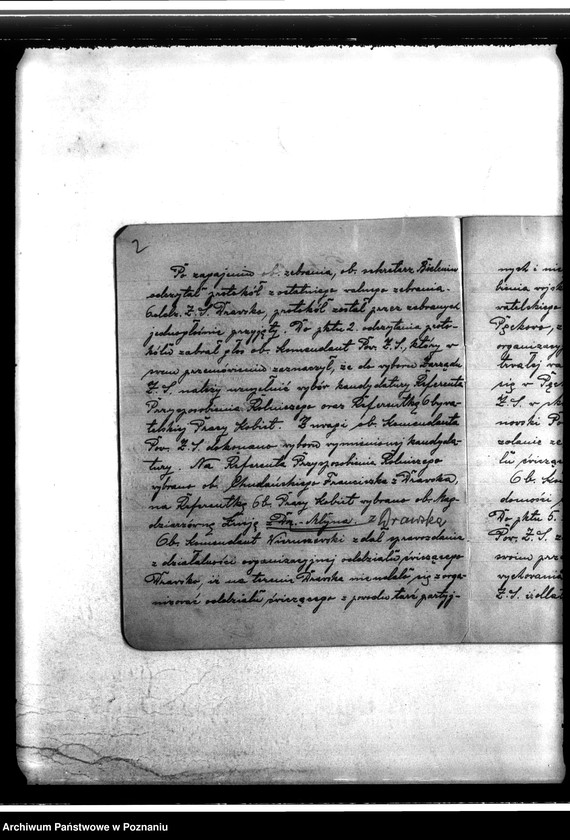 2
Po zagajeniu ob. zebrania, ob. sekretarz Bielenin
odczytał protokół z ostatniego walnego zebrania.
Oddz. Z.S. Drawsko, protokół został przez zebranych
jednogłośnie przyjęty. Do pktu 2. odczytania proto-
kółu zabrał głos ob. Komendant Pow. Z.S., który w
swem przemówieniu zaznaczył, że do wyboru Zarządu
Z.S. należy uzupełnić wybór kandydatury Referenta
Przysposobienia Rolniczego oraz Referentkę Obywa-
telskiej Pracy Kobiet. Z uwagi ob. Komendanta
Pow. Z.S. dokonano wyboru wymienionej kandyda-
tury. Na Referenta Przysposobienia Rolniczego
wybrano ob. Chudzińskiego Franciszka z Drawska,
na Referentkę Ob. Pracy Kobiet wybrano ob. Mag-
dziarzównę z Dr.-Młyna. z Drawska
Ob. Komendant zdał sprawozdanie
z działalności organizacyjnej oddziału ćwiczącego
Drawsko, iż na terenie Drawska nie udało się zorga-
nizować oddziału ćwiczącego z powodu tarć partyj-
nych i
bienia wojsk
watelskiego
Pęckowo, z
organizacyj
trwałej
się w Pęc
Z.S. w
nowski Po
zdanie ze
łu ćwicząc
Ob. Kom
domości
Do pktu 5.
Pow. Z.S. z
swoim prze
wychowania
Z.S.
Archiwum Państwowe w Poznaniu